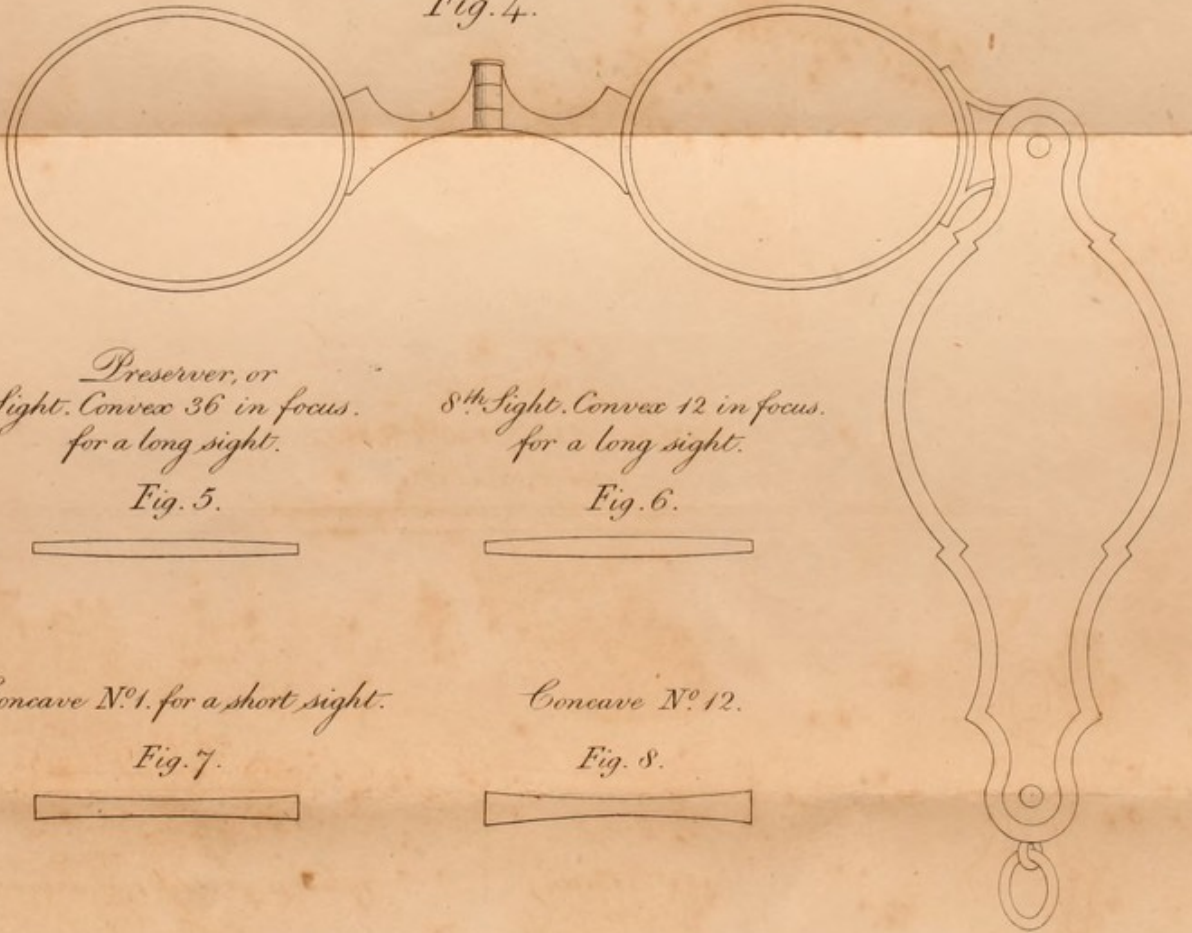 Fig. 4.
Preserver, or
Sight. Convex 36 in focus.
for a long sight.
Fig. 5.
8th Sight. Convex 12 in focus.
for a long sight.
Fig. 6.
oncave No. 1. for a short sight.
Fig. 7.
Concave No. 12.
Fig. 8.